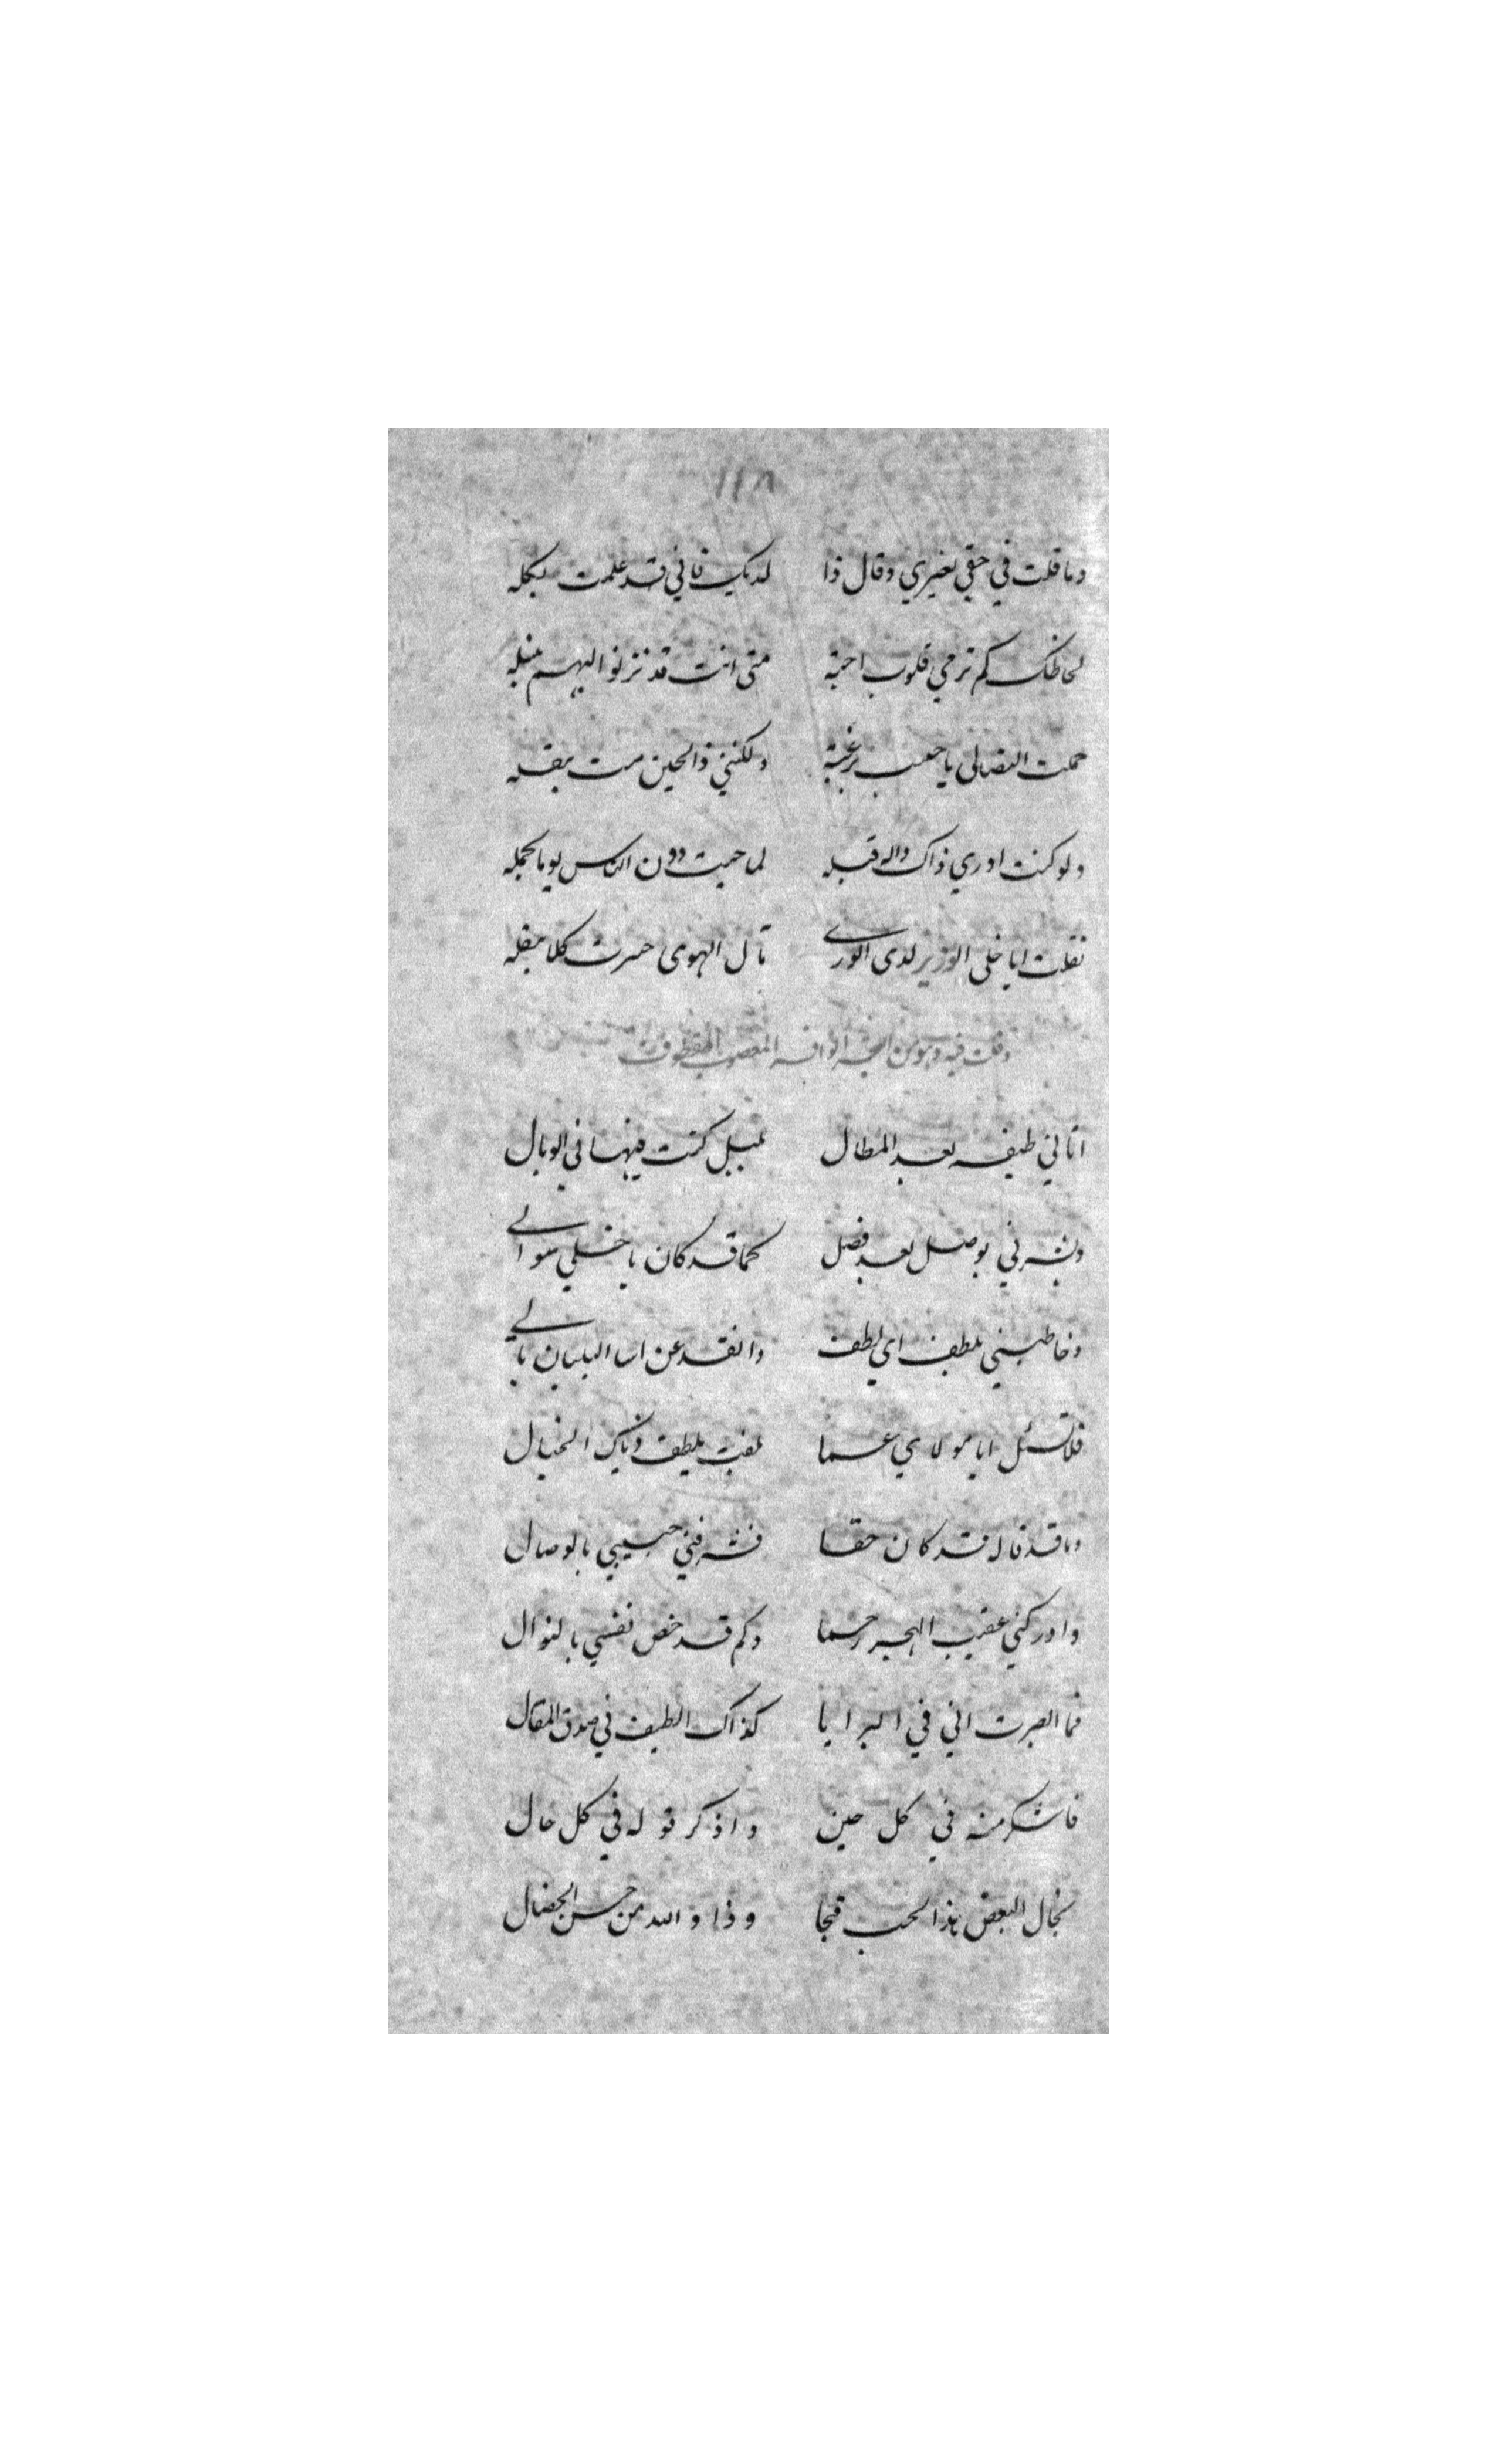 ١١٨
وما قلت في حقي لغيري وقال ذا لديك فاني قد علمت بكله
لحاظك كم ترمي قلوب احبة متى انت قد ترنو اليهم بنبله
حملت التصابي يا حبيب برغبة ولكنني ذا الحين مت بثقله
ولو كنت ادري ذاك والله قبله لما حبيت دون الناس يوما بحمله
فقلت ايا خلي الوزير لدى الورى مآل الهوى خسرت كلا بعقله
وقلت فيه وهو من البحر الوافر المعصوب المقطوف
اتاني طيفه بعد المطال بليل كنت فيها في الوبال
وبشرني بوصل بعد فصل كما قد كان يا خلي سوالي
وخاطبني بلطف اي لطف وانقد عن اسا البلبان بالي
فلا تسئل ايا مولاي عما لقيت بلطف ذياك الخيال
وما قد قاله قد كان حقا فشرفني حبيبي بالوصال
وادركني عقيب الهجر رحما وكم قد خص نفسي بالنوال
فما ابصرت اني في البرايا كذاك الطيف في صدق المقال
فاشكر منه في كل حين واذكر قوله في كل حال
فخال البعض هذا الحب قبحا وذا والله من حسن الخصال